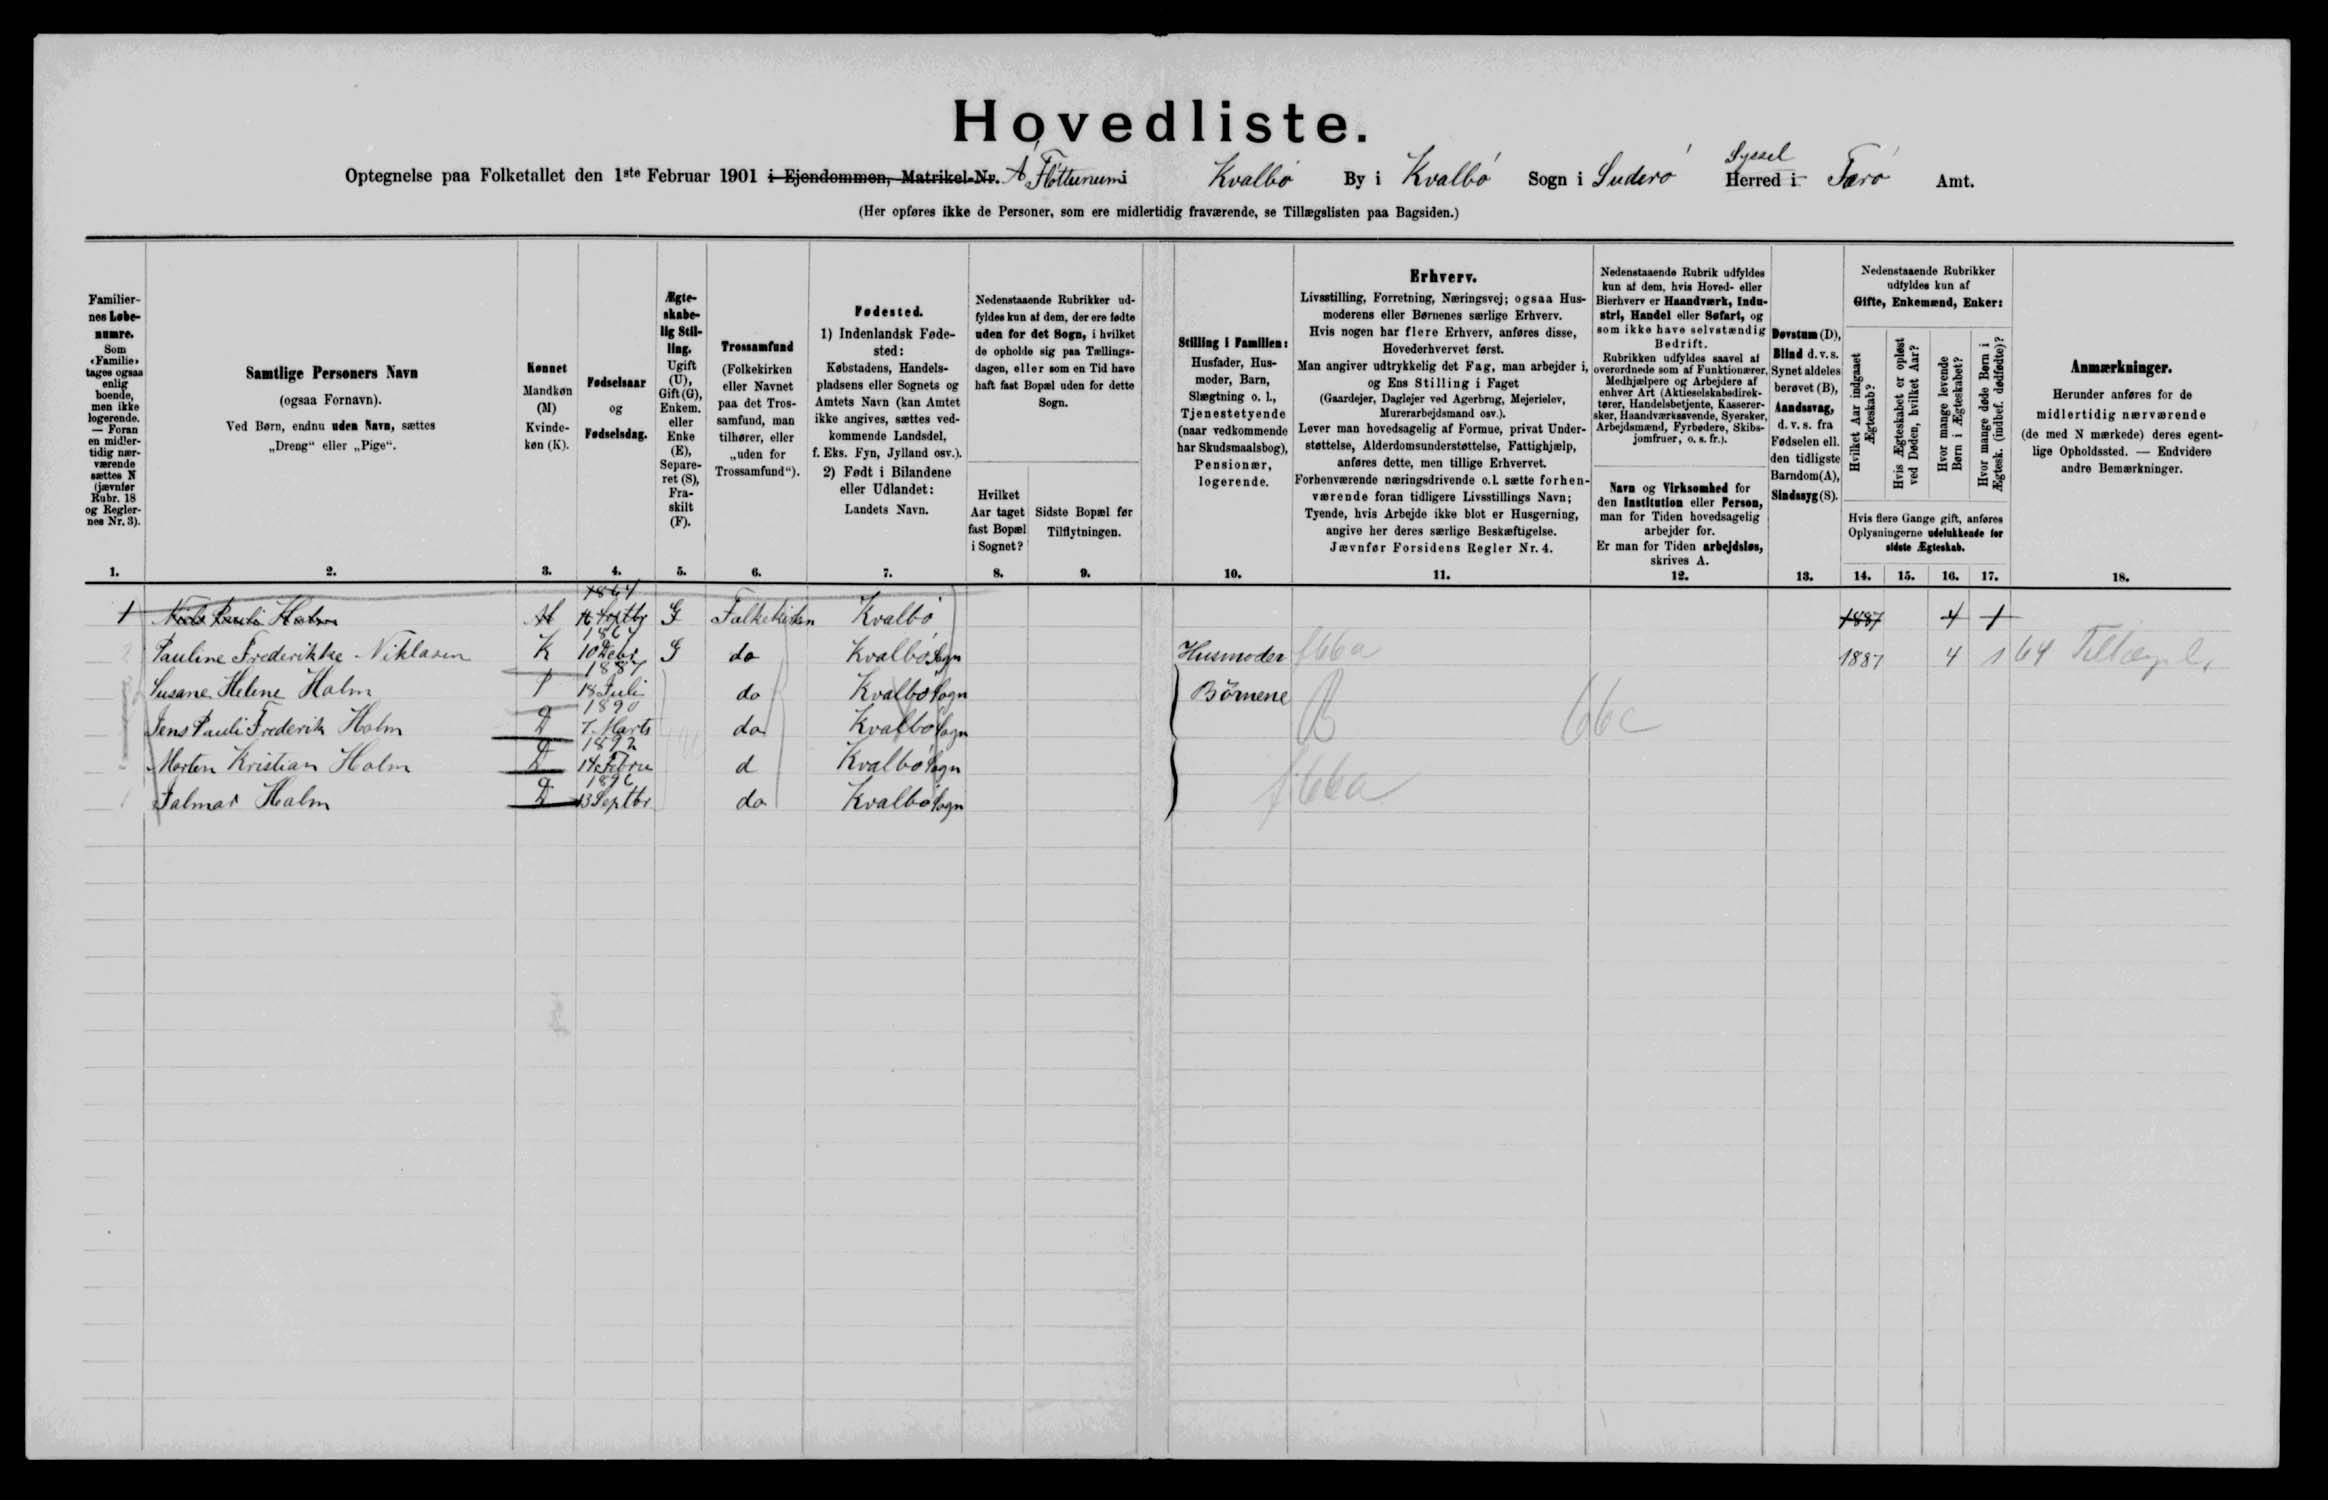 Hovedliste.
Optegnelse paa Folketallet den 1ste Februar 1901 i Ejendommen, Matrikel-Nr. Á Fløttunumi Kvalbø By i Kvalbø Sogn i Suderø Syssel Herred i Færø Amt.
(Her opføres ikke de Personer, som ere midlertidig fraværende, se Tillægslisten paa Bagsiden.)
Familier-
nes Løbe-
numre.
Som
«Familie»
tages ogsaa
enlig
boende,
men ikke
logerende.
— Foran
en midler-
tidig nær-
værende
sættes N
(jævnfør
Rubr. 18
og Regler-
nes Nr. 3).
1.
Samtlige Personers Navn
(ogsaa Fornavn).
Ved Børn, endnu uden Navn, sættes
„Dreng“ eller „Pige“.
2.
Kønnet
Mandkøn
(M)
Kvinde-
køn (K).
3.
Fødselsaar
og
Fødselsdag.
4.
Ægte-
skabe-
lig Stil-
ling.
Ugift
(U),
Gift (G),
Enkem.
eller
Enke
(E),
Separe-
ret (S),
Fra-
skilt
(F).
5.
Trossamfund
(Folkekirken
eller Navnet
paa det Tros-
samfund, man
tilhører, eller
„uden for
Trossamfund“).
6.
Fødested.
1) Indenlandsk Føde-
sted:
Købstadens, Handels-
pladsens eller Sognets og
Amtets Navn (kan Amtet
ikke angives, sættes ved-
kommende Landsdel,
f. Eks. Fyn, Jylland osv.).
2) Født i Bilandene
eller Udlandet:
Landets Navn.
7.
Nedenstaaende Rubrikker ud-
fyldes kun af dem, der ere fødte
uden for det Sogn, i hvilket
de opholde sig paa Tællings-
dagen, eller som en Tid have
haft fast Bopæl uden for dette
Sogn.
Hvilket
Aar taget
fast Bopæl
i Sognet?
8.
Sidste Bopæl før
Tilflytningen.
9.
Stilling i Familien:
Husfader, Hus-
moder, Barn,
Slægtning o. l.,
Tjenestetyende
(naar vedkommende
har Skudsmaalsbog),
Pensionær,
logerende.
10.
Erhverv.
Livsstilling, Forretning, Næringsvej; ogsaa Hus-
moderens eller Børnenes særlige Erhverv.
Hvis nogen har flere Erhverv, anføres disse,
Hovederhvervet først.
Man angiver udtrykkelig det Fag, man arbejder i,
og Ens Stilling i Faget
(Gaardejer, Daglejer ved Agerbrug, Mejerielev,
Murerarbejdsmand osv.).
Lever man hovedsagelig af Formue, privat Under-
støttelse, Alderdomsunderstøttelse, Fattighjælp,
anføres dette, men tillige Erhvervet.
Forhenværende næringsdrivende o. l. sætte forhen-
værende foran tidligere Livsstillings Navn;
Tyende, hvis Arbejde ikke blot er Husgerning,
angive her deres særlige Beskæftigelse.
Jævnfør Forsidens Regler Nr. 4.
11.
Nedenstaaende Rubrik udfyldes
kun af dem, hvis Hoved- eller
Bierhverv er Haandværk, Indu-
stri, Handel eller Søfart, og
som ikke have selvstændig
Bedrift.
Rubrikken udfyldes saavel af
overordnede som af Funktionærer,
Medhjælpere og Arbejdere af
enhver Art (Aktieselskabsdirek-
tører, Handelsbetjente, Kasserer-
sker, Haandværkssvende, Syersker,
Arbejdsmænd, Fyrbødere, Skibs-
jomfruer, o. s. fr.).
Navn og Virksomhed for
den Institution eller Person,
man for Tiden hovedsagelig
arbejder for.
Er man for Tiden arbejdsløs,
skrives A.
12.
Døvstum (D),
Blind d. v. s.
Synet aldeles
berøvet (B),
Aandssvag,
d. v. s. fra
Fødselen ell.
den tidligste
Barndom (A),
Sindssyg (S).
13.
Nedenstaaende Rubrikker
udfyldes kun af
Gifte, Enkemænd, Enker:
Hvilket Aar indgaaet
Ægteskab?
Hvis Ægteskabet er opløst
ved Døden, hvilket Aar?
Hvor mange levende
Børn i Ægteskabet?
Hvor mange døde Børn i
Ægtesk. (indbef. dødfødte)?
Hvis flere Gange gift, anføres
Oplysningerne udelukkende for
sidste Ægteskab.
14. 15. 16. 17.
Anmærkninger.
Herunder anføres for de
midlertidig nærværende
(de med N mærkede) deres egent-
lige Opholdssted. — Endvidere
andre Bemærkninger.
18.
1 Niels Pauli Holm M 1864 16 Septbr G Folkekirken Kvalbø 1887 4 1
Pauline Frederikke Niklasen K 1867 10 Debr G do Kvalbø Sogn Husmoder f66a 1887 4 1 64 Tillægsl.
Susane Helene Holm P 1887 18 Juli do Kvalbø Sogn Børnene
Jens Pauli Frederik Holm D 1890 7. Marts do Kvalbø Sogn B 66c
Morten Kristian Holm D 1892 14 Febru d Kvalbø Sogn
Jalmar Holm D 1896 13 Septbr do Kvalbø Sogn f66a